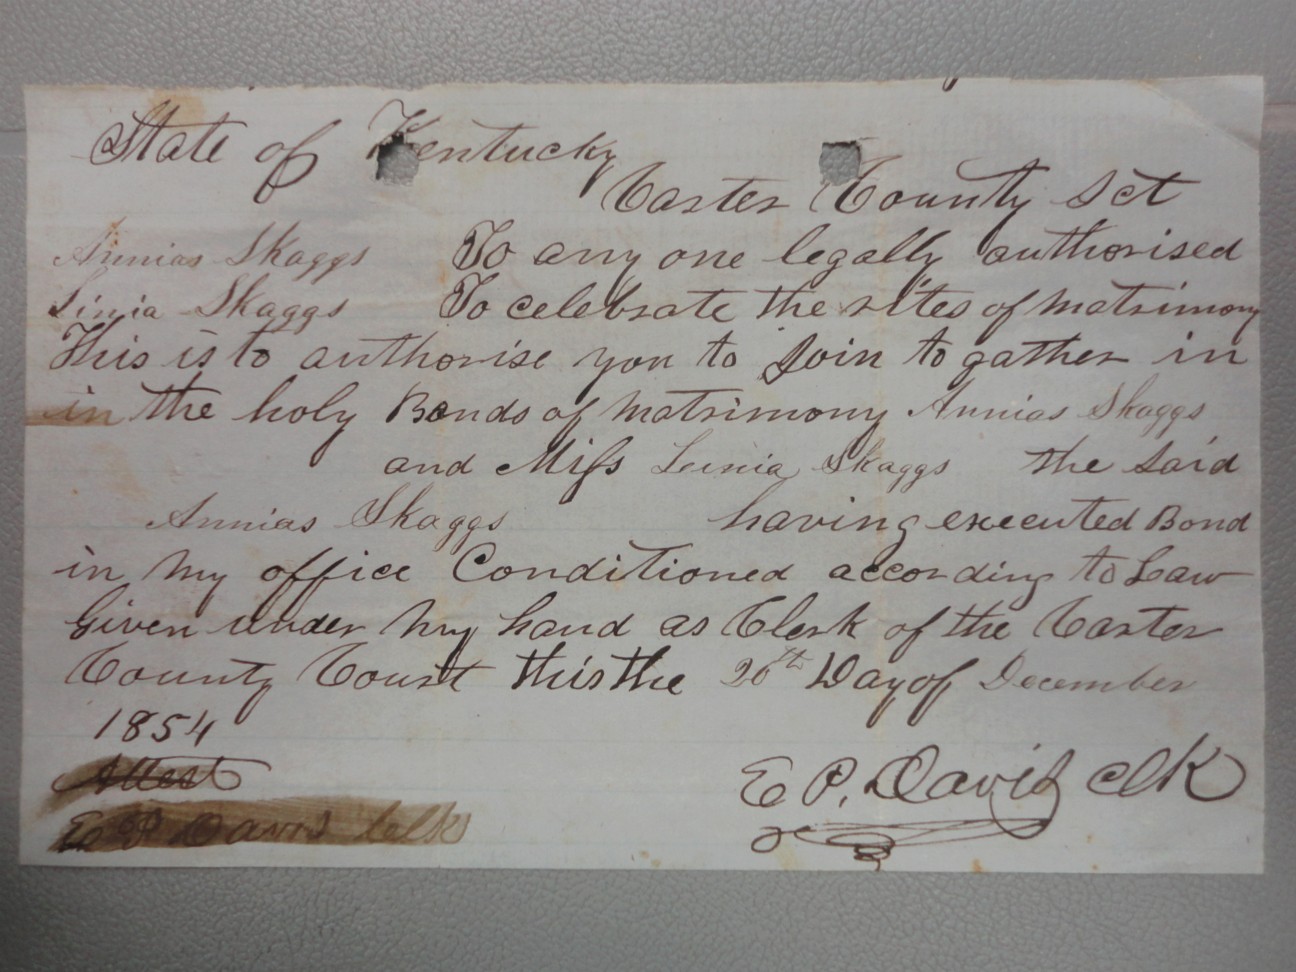 State of Kentucky
Carter County Sct
Annias Skaggs To any one legally authorised
Linia Skaggs To celebrate the rites of matrimony
This is to authorise you to Join to gather in
in the holy Bonds of matrimony Annias Skaggs
and Miss Linia Skaggs the said
Annias Skaggs having executed Bond
in my office Conditioned according to Law
Given under my hand as Clerk of the Carter
County Court this the 20th Day of December
1854
Attest
E P. Davis clk
E P Davis